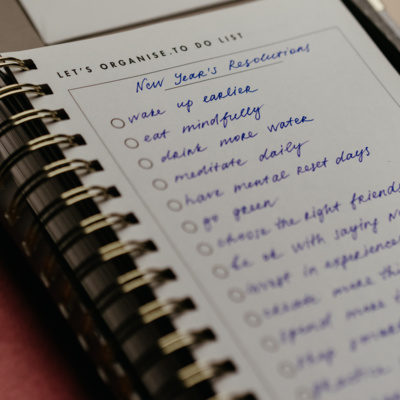 LET'S ORGANISE.TO DO LIST
New Year's Resolutions
wake up earlier
eat mindfully
drink more water
meditate daily
have mental reset days
go green
choose the right friends
be ok with saying
invest in experiences
create more
spend more
stop